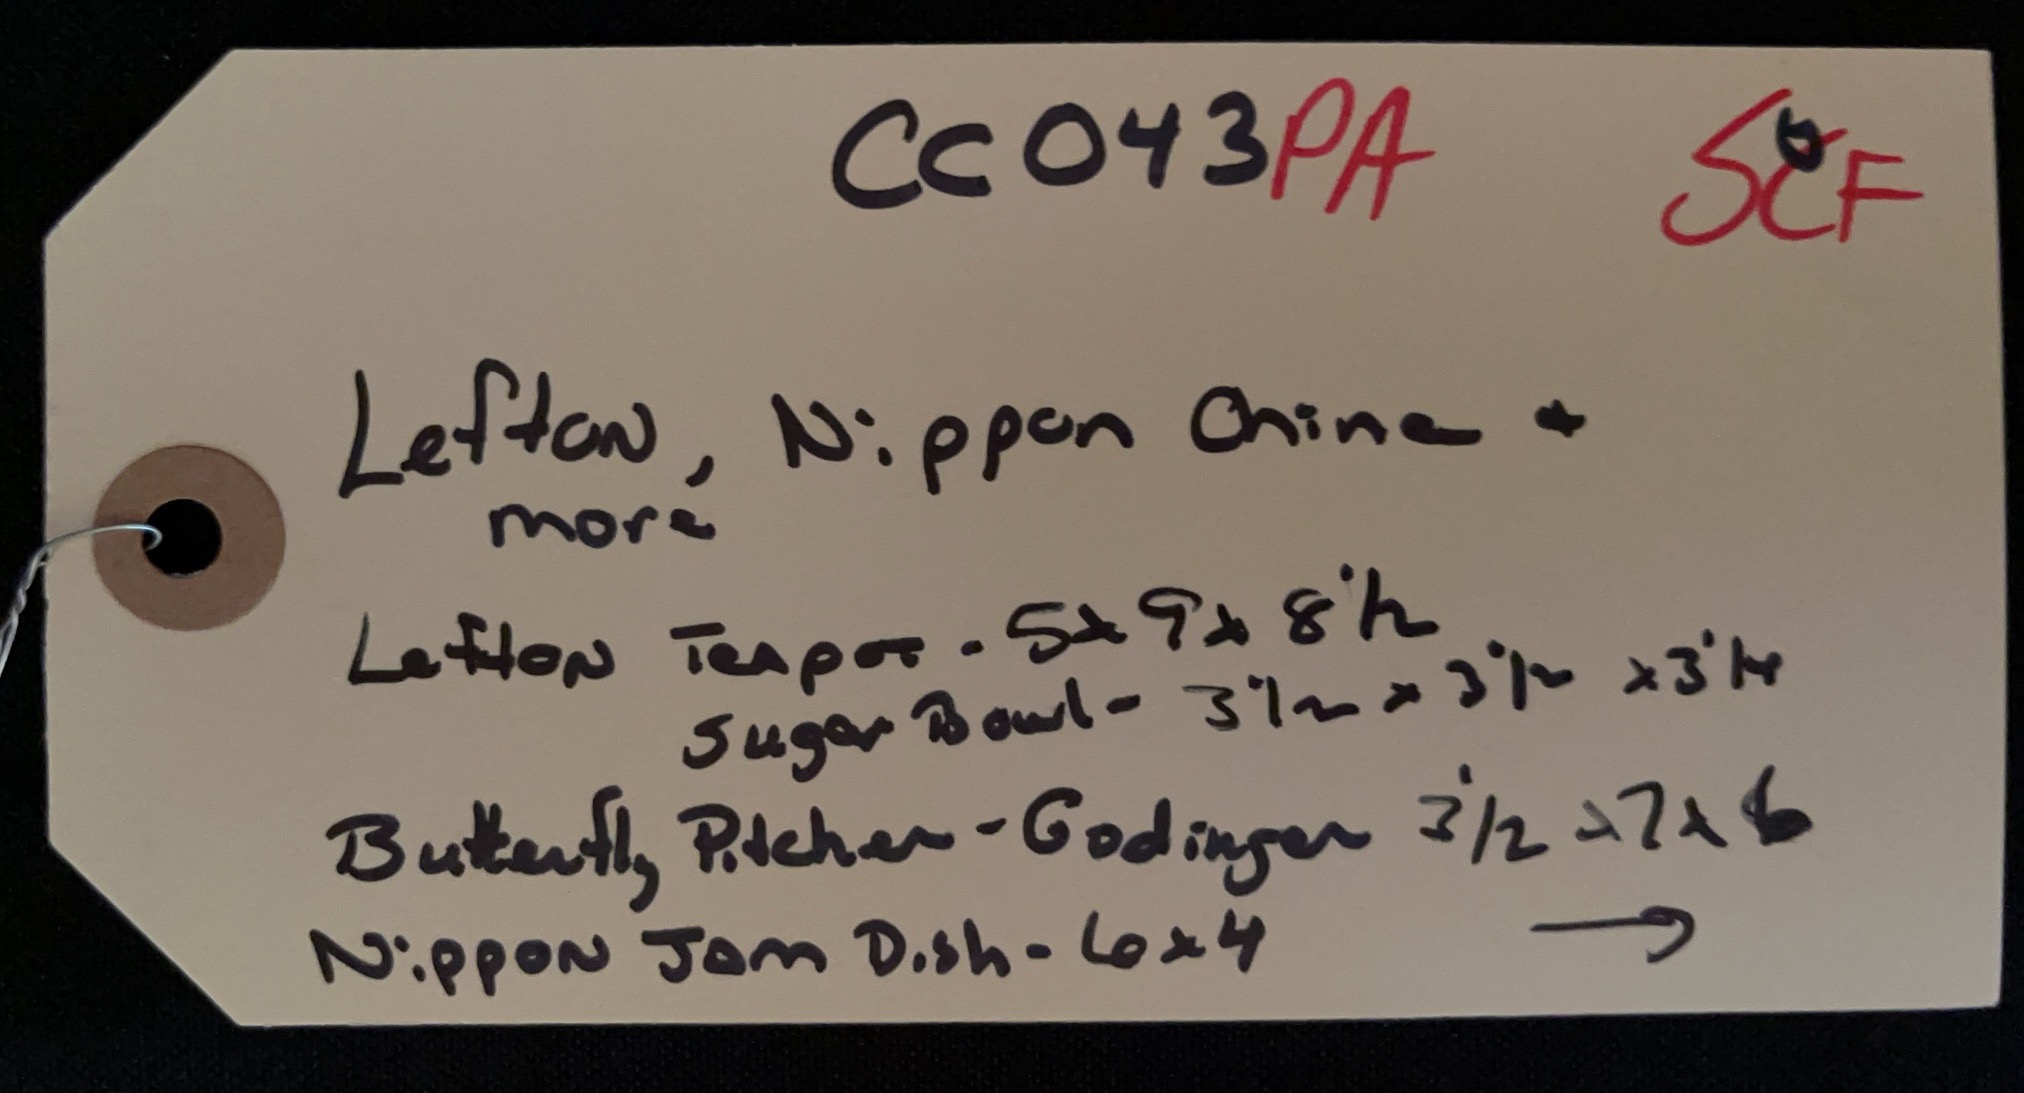 CC043PA SCF
Lefton, Nippon China +
more
Lefton Teapot - 5x9x8 1/2
Sugar Bowl - 3 1/2 x 3 1/2 x 3 1/4
Butterfly Pitcher - Godinger 3 1/2 x7x6
Nippon Jam Dish - 6x4 →